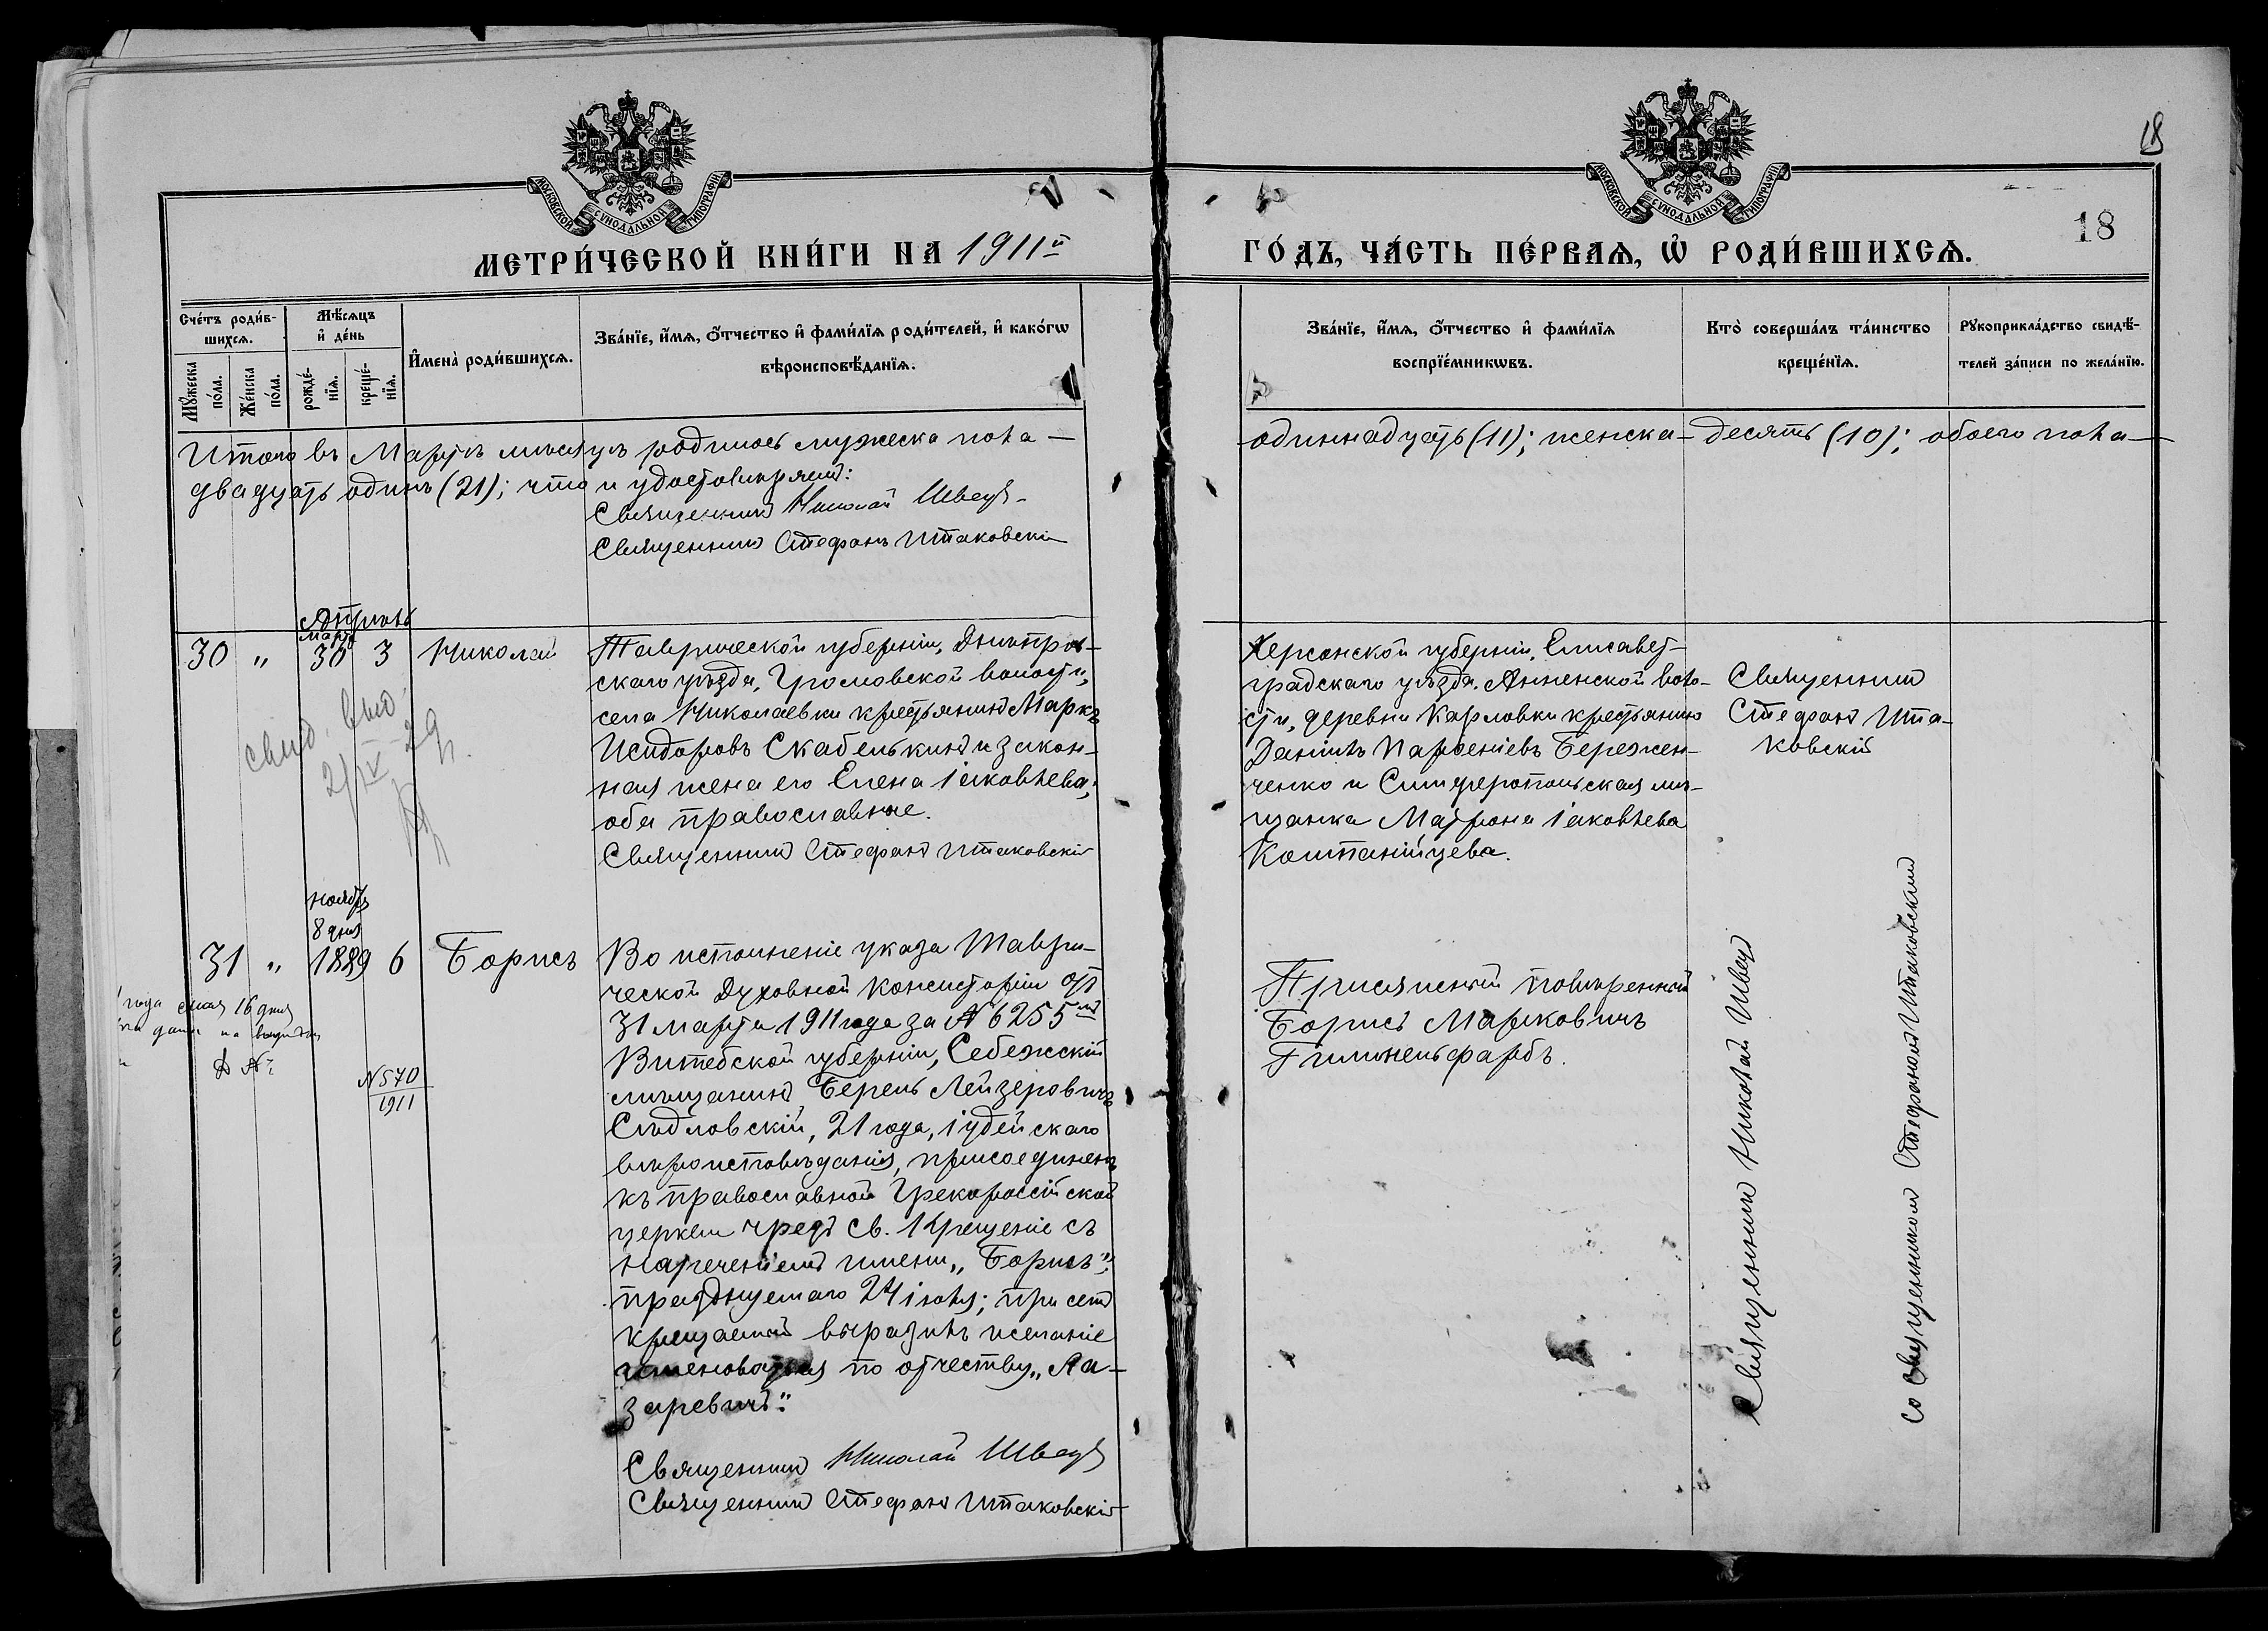 18
МОСКОВСКОЙ СѴНОДАЛЬНОЙ ТИПОГРАФІИ
МОСКОВСКОЙ СѴНОДАЛЬНОЙ ТИПОГРАФІИ
18
МЕТРИ́ЧЕСКОЙ КНИ́ГИ НА 1911й
ГО́ДЪ, ЧА́СТЬ ПЕ́РВАѦ, Ѡ҆ РОДИ́ВШИХСѦ.
Сче́тъ роди́в-
шихсѧ.
Мꙋ́жеска по́ла.
Же́нска по́ла.
Мѣ́сѧцъ
и҆ де́нь
рожде́-
нїѧ.
креще́-
нїѧ.
И҆мена̀ роди́вшихсѧ.
Зва́нїе, и҆́мѧ, ѻ҆́тчество и҆ фами́лїѧ роди́телей, и҆ како́гѡ
вѣроисповѣ́данїѧ.
Зва́нїе, и҆́мѧ, ѻ҆́тчество и҆ фами́лїѧ
воспрїе́мникѡвъ.
Кто̀ соверша́лъ та́инство
креще́нїѧ.
Рꙋкоприкла́дство свидѣ́-
телей за́писи по жела́нїю.
Итого въ Мартѣ мѣсяцѣ родилось мужеска пола — одиннадцать (11); женска — десять (10); обоего пола —
двадцать одинъ (21); что и удостовѣряемъ:
Священникъ Николай Швецъ
Священникъ Стефанъ Штаковскій
Апрѣль
30 " Марта 30 3 Николай
Таврической губерніи, Днѣпров-
скаго уѣзда, Громовской волости,
села Николаевки крестьянинъ Маркъ
Исидоровъ Скабелькинъ и закон-
ная жена его Елена Іаковлева;
оба православные.
Священникъ Стефанъ Штаковскій
Херсонской губерніи, Елисавет-
градскаго уѣзда, Анненской воло-
сти, деревни Карловки крестьянинъ
Даніилъ Парѳеніевъ Бережен-
ченко и Симферопольская мѣ-
щанка Матрона Іаковлева
Компанійцева.
Священникъ
Стефанъ Шта-
ковскій
свид. выд.
21/IV 29 г.
31 " Ноября 8 дня 1889 6 Борисъ
года мая 16 дня
№ 570
1911
Во исполненіе указа Таври-
ческой Духовной Консисторіи отъ
31 марта 1911 года за № 6255мъ
Витебской губерніи, Себежскій
мѣщанинъ Берель Лейзеровичъ
Сѣдловскій, 21 года, іудейскаго
вѣроисповѣданія, присоединенъ
къ православной Грекороссійской
церкви чрезъ Св. Крещеніе съ
нареченіемъ имени „Борисъ",
празднуемаго 24 іюля; при семъ
крещаемый выразилъ желаніе
именоваться по отчеству „Ла-
заревичъ".
Священникъ Николай Швецъ
Священникъ Стефанъ Штаковскій
Присяжный повѣренный
Борисъ Марковичъ
Гиммельфарбъ.
Священникъ Николай Швецъ
со священникомъ Стефаномъ Штаковскимъ